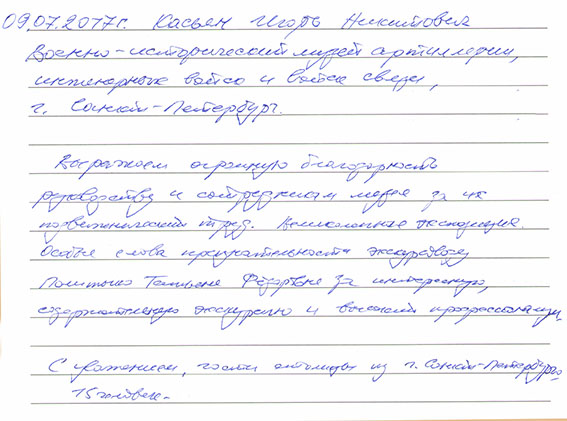 09.07.2017г. Касьян Игорь Никитович
Военно-исторический музей артиллерии,
инженерных войск и войск связи,
г. Санкт-Петербург.
Выражаем огромную благодарность
руководству и сотрудникам музея за их
подвижнический труд. Великолепная экспозиция.
Особые слова признательности экскурсоводу
Татьяне Фёдоровне за интересную,
содержательную экскурсию и высокий профессионализм.
С уважением, гости из г. Санкт-Петербурга
15 человек.